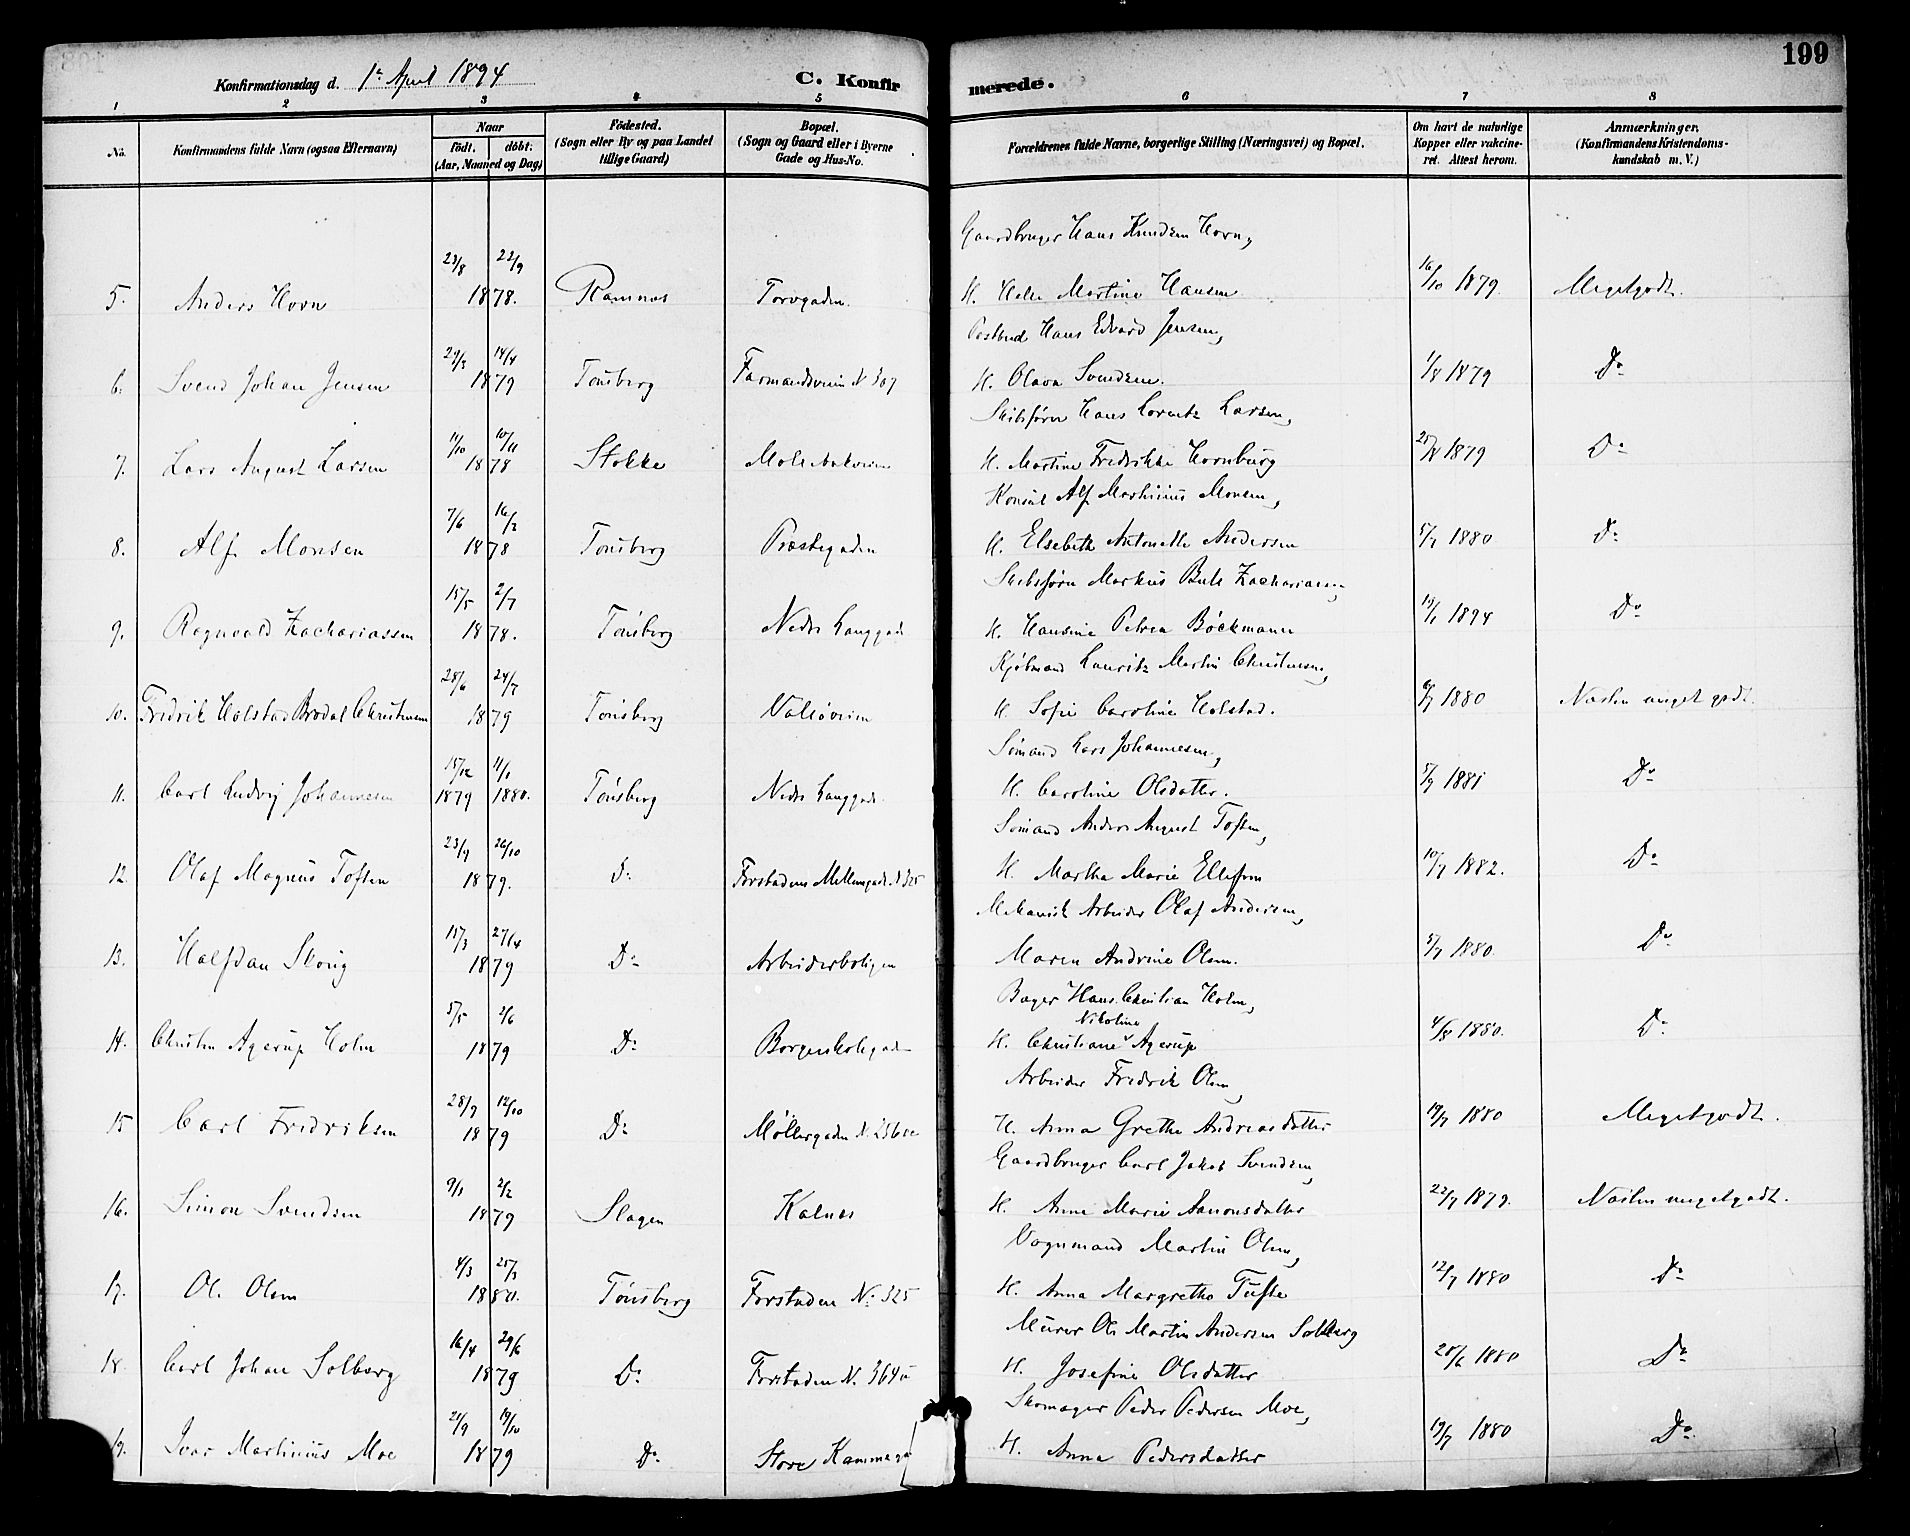 199
Konfirmationsdag d. 1ste April 1894
C. Konfirmerede.
1 2 3 4 5 6 7 8
No. Konfirmandens fulde Navn (ogsaa Efternavn) Naar født. døbt. (Aar, Maaned og Dag) Födested. (Sogn eller By og paa Landet tillige Gaard) Bopæl. (Sogn og Gaard eller i Byerne Gade og Hus-No. Forældrenes fulde Navne, borgerlige Stilling (Næringsvei) og Bopæl. Om havt de naturlige Kopper eller vakcineret. Attest herom. Anmærkninger. (Konfirmandens Kristendomskundskab m. V.)
Gaardbruger Hans Knudsen Horn,
5. Anders Horn 23/8 22/9 1878. Ramnes Torvgaden. H. Helle Martine Hansen 16/10 1879 Megetgodt.
Postbud Hans Edvard Jensen,
6. Svend Johan Jensen 14/4 1879 Tønsberg Farmandsveien N 307 H. Olava Svendsen. 1/8 1879 Do
Skibsfører Hans Lorentz Larsen,
7. Lars August Larsen 11/10 10/11 1878 Stokke H. Martine Fredrikke Hornburg 1879 Do
Konsul Alf Martinius Monsen,
8. Alf Monsen 7/6 1878 Tønsberg Præstegaden H. Elsebeth Antonette Andersen 5/7 1880 Do
Skibsfører Markus Zachariassen,
9. Ragnvald Zachariassen 15/5 2/7 1878. Tønsberg Nedre Langgade H. Hansine Petrea Böckmann 1894 Do
Kjøbmand Lauritz Martin Christensen,
10. Fredrik Holstad Brodal Christensen 28/6 24/7 1879 Tønsberg H. Sofie Caroline Holstad. 1880 Næsten meget godt.
Sømand Lars Johannesen,
11. Carl Ludvig Johannesen 15/12 1879 11/1 1880. Tønsberg Nedre Langgade. H. Caroline Olsdatter. 5/9 1881 Do
Sømand Anders August Toften,
12. Olaf Magnus Toften 23/9 26/10 1879. Do Forstadens Mellemgade N 325 H. Martha Marie Ellefsen 10/7 1882. Do
Mekanisk Arbeider Olaf Andersen,
13. Halfdan Skoug 15/3 27/4 1879 Do Arbeiderboligen Maren Andrine Olsen. 5/7 1880 Do
Bager Hans Christian Holm,
14. Christen Agerup Holm 5/5 2/6 1879 Do H. Christiane Nikoline Agerup 4/8 1880. Do
Arbeider Fredrik Olsen
15 Carl Fredriksen 28/9 12/10 1879 Do Møllergaden N. H. Anna Grethe Andreasdatter 19/7 1880 Megetgodt.
Gaardbruger Carl Jakob Svendsen,
16. Simon Svendsen 9/1 2/2 1879 Slagen Kalnes H. Anne Marie Aanonsdatter 22/7 1879. Næsten megetgodt.
Vognmand Martin Olsen,
17. Ole Olsen 4/3 25/3 1880. Tønsberg Forstaden No. 325 H. Anna Margrethe Tufte 12/7 1880 Do
Murer Ole Martin Andersen Solberg
18. Carl Johan Solberg 16/4 29/6 1879 Do Forstaden N. 364 H. Josefine Olsdatter 1880 Do
Skomager Peder Pedersen Moe,
19. Ivar Martinius Moe 21/9 19/10 1879 Do Store H. Anna Pedersdatter 19/7 1880 Do